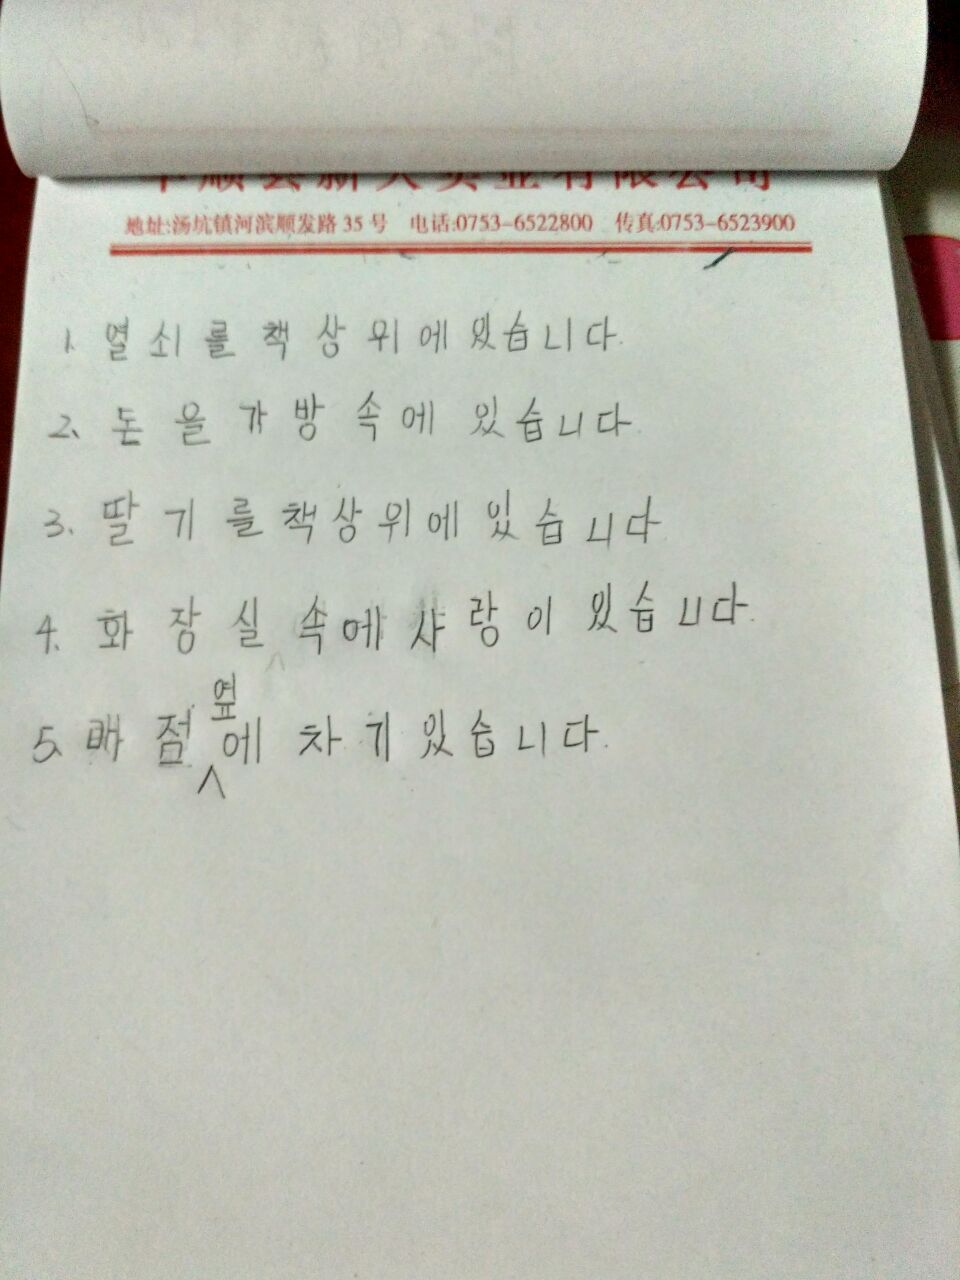 地址:汤坑镇河滨顺发路 35 号 电话:0753-6522800 传真:0753-6523900
1. 열쇠를 책상 위에 있습니다.
2. 돈을 가방 속에 있습니다.
3. 딸기를 책상 위에 있습니다
4. 화장실 속에 사랑이 있습니다.
5. 배점 옆에 차기 있습니다.